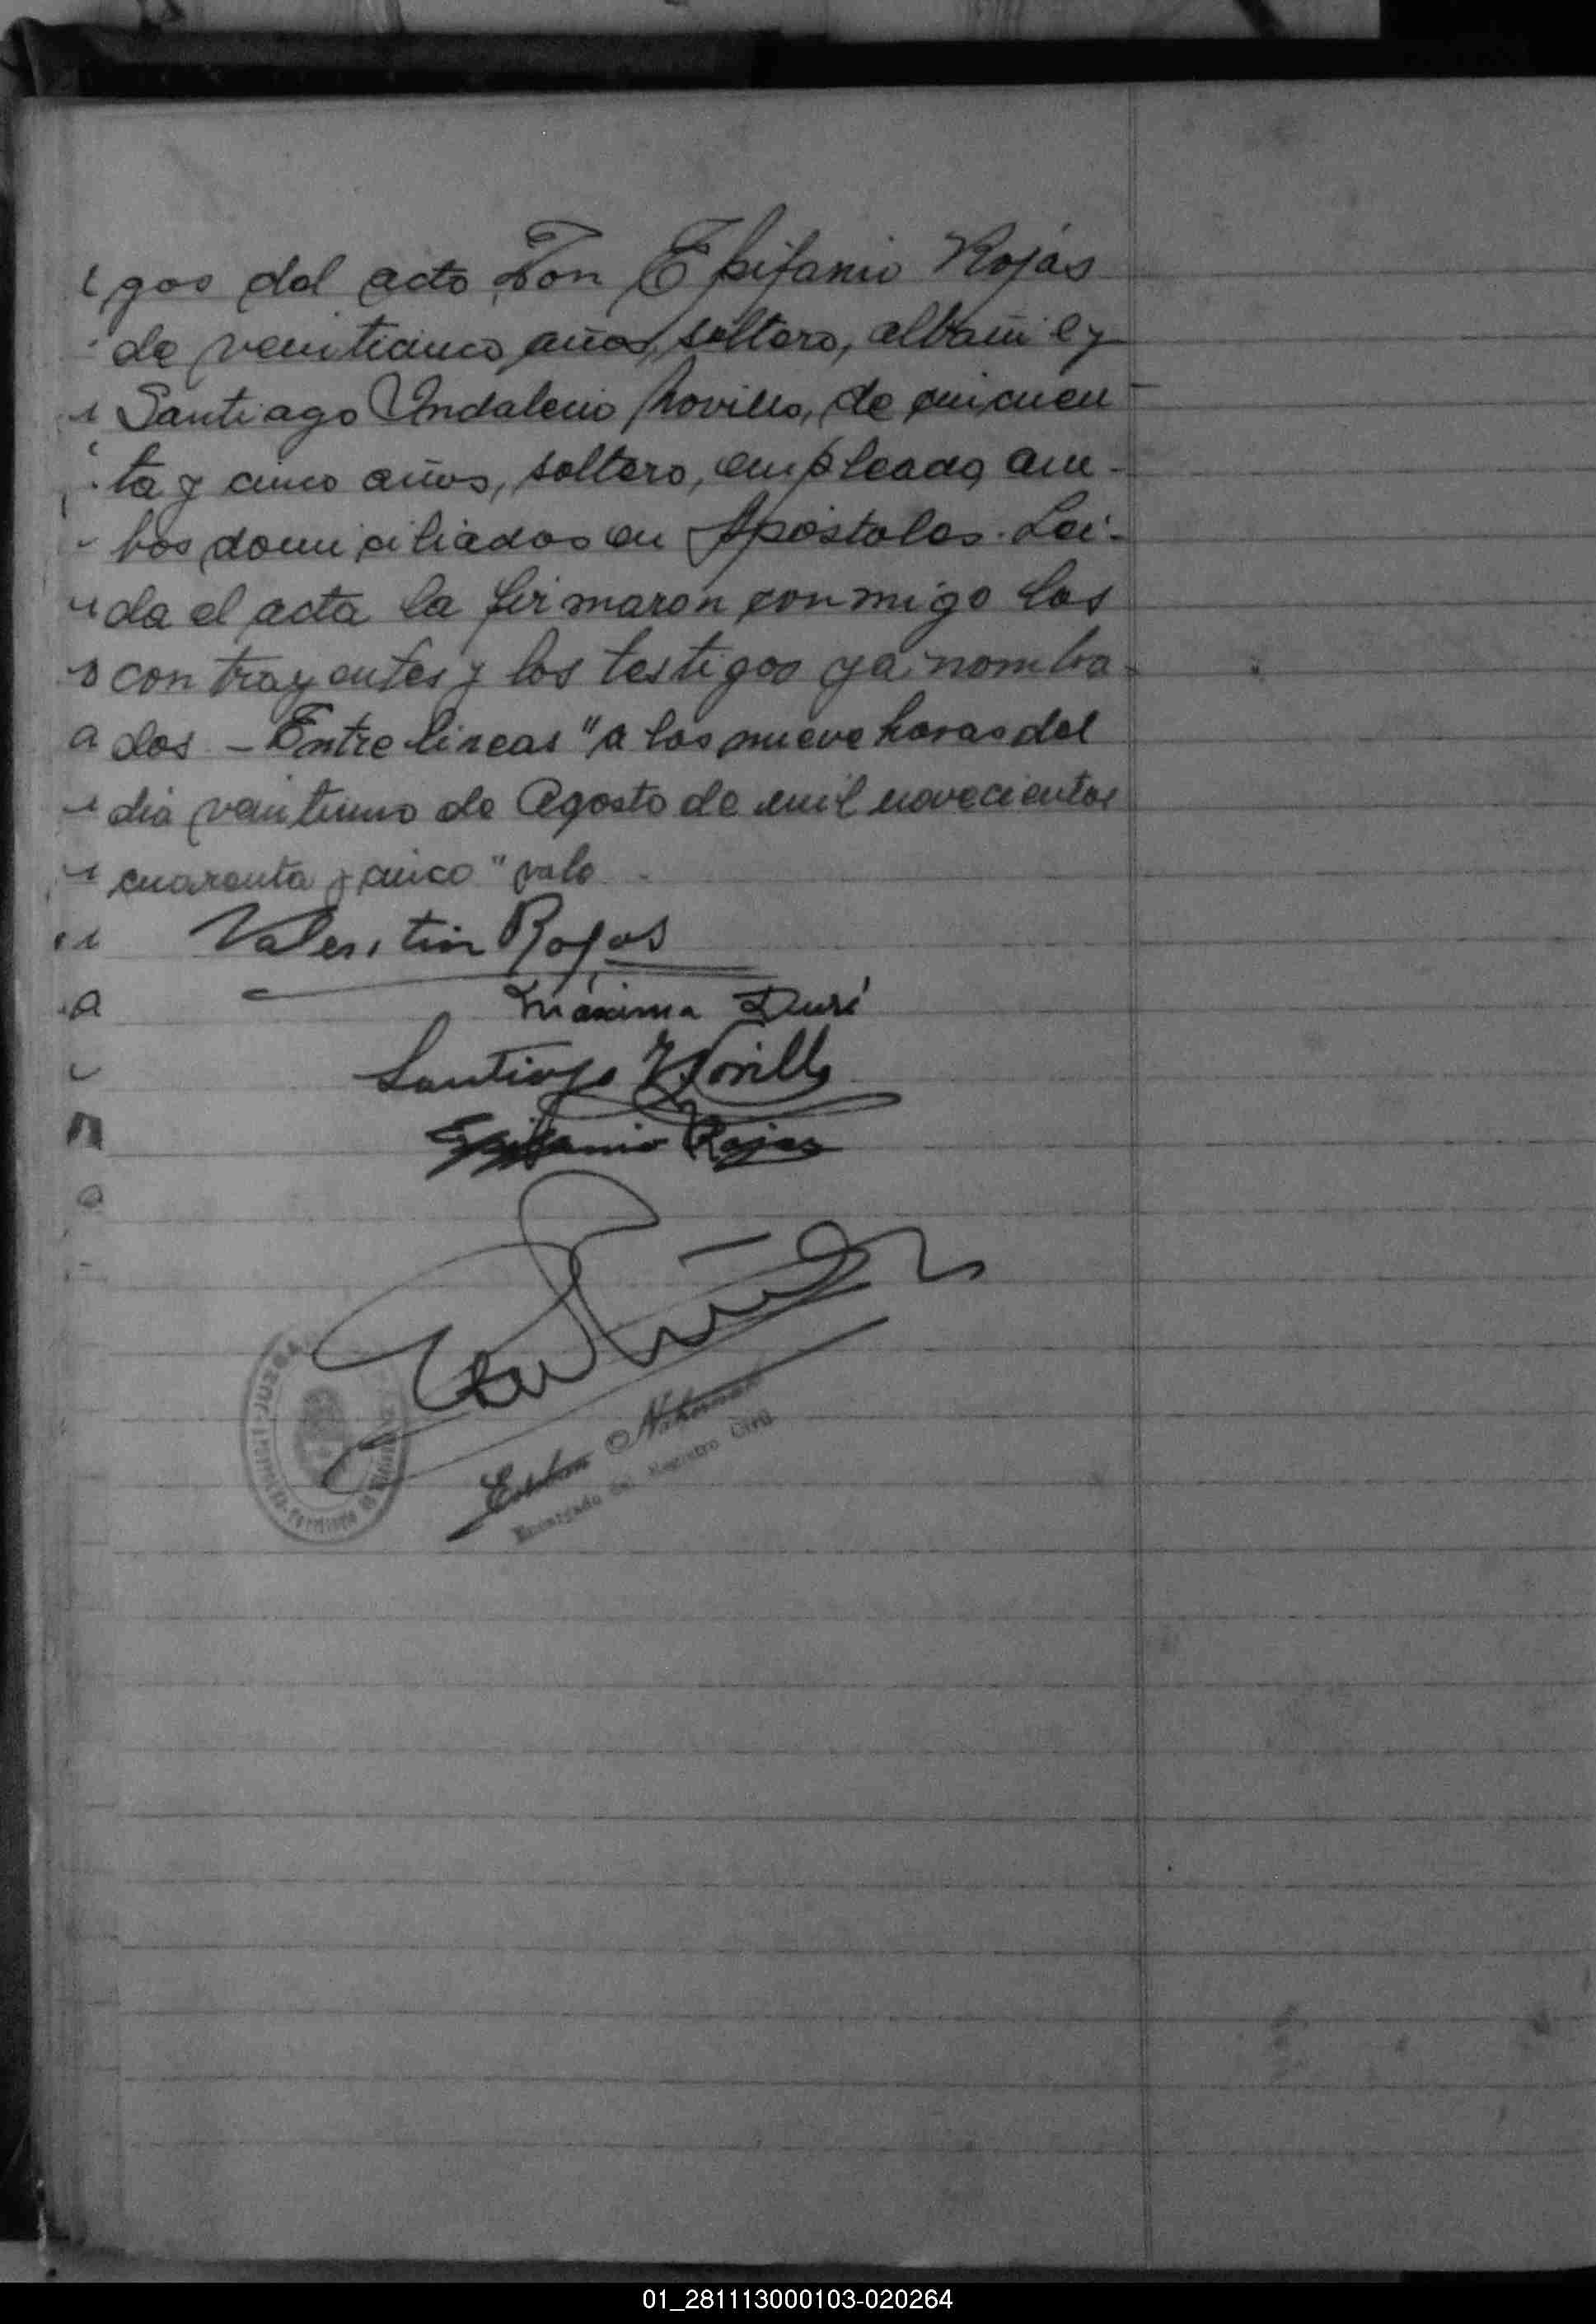 gos del acto Don Epifanio Rojas
de veinticinco años, soltero, albañil y
Santiago Indalecio Novillo, de cincuen
ta y cinco años, soltero, empleado, am-
bos domiciliados en Apóstoles. Leí-
da el acta la firmaron conmigo los
contrayentes y los testigos ya nombra-
dos - Entre líneas "a las nueve horas del
día veintiuno de Agosto de mil novecientos
cuarenta y cinco" vale
Valentin Rojas
Máxima Duré
Santiago I. Novillo
Epifanio Rojas
Esteban
Encargado del Registro Civil
01_281113000103-020264